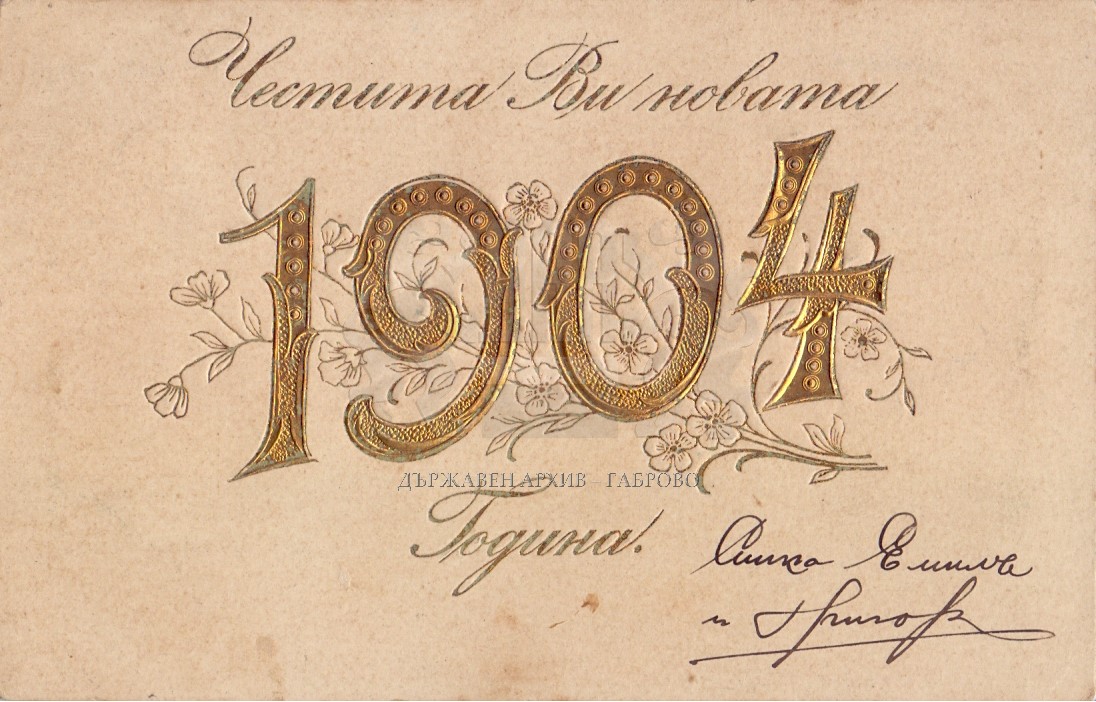 Честита Ви новата
1904
ДЪРЖАВЕН АРХИВ – ГАБРОВО
Година.
Емилъ
и Григор